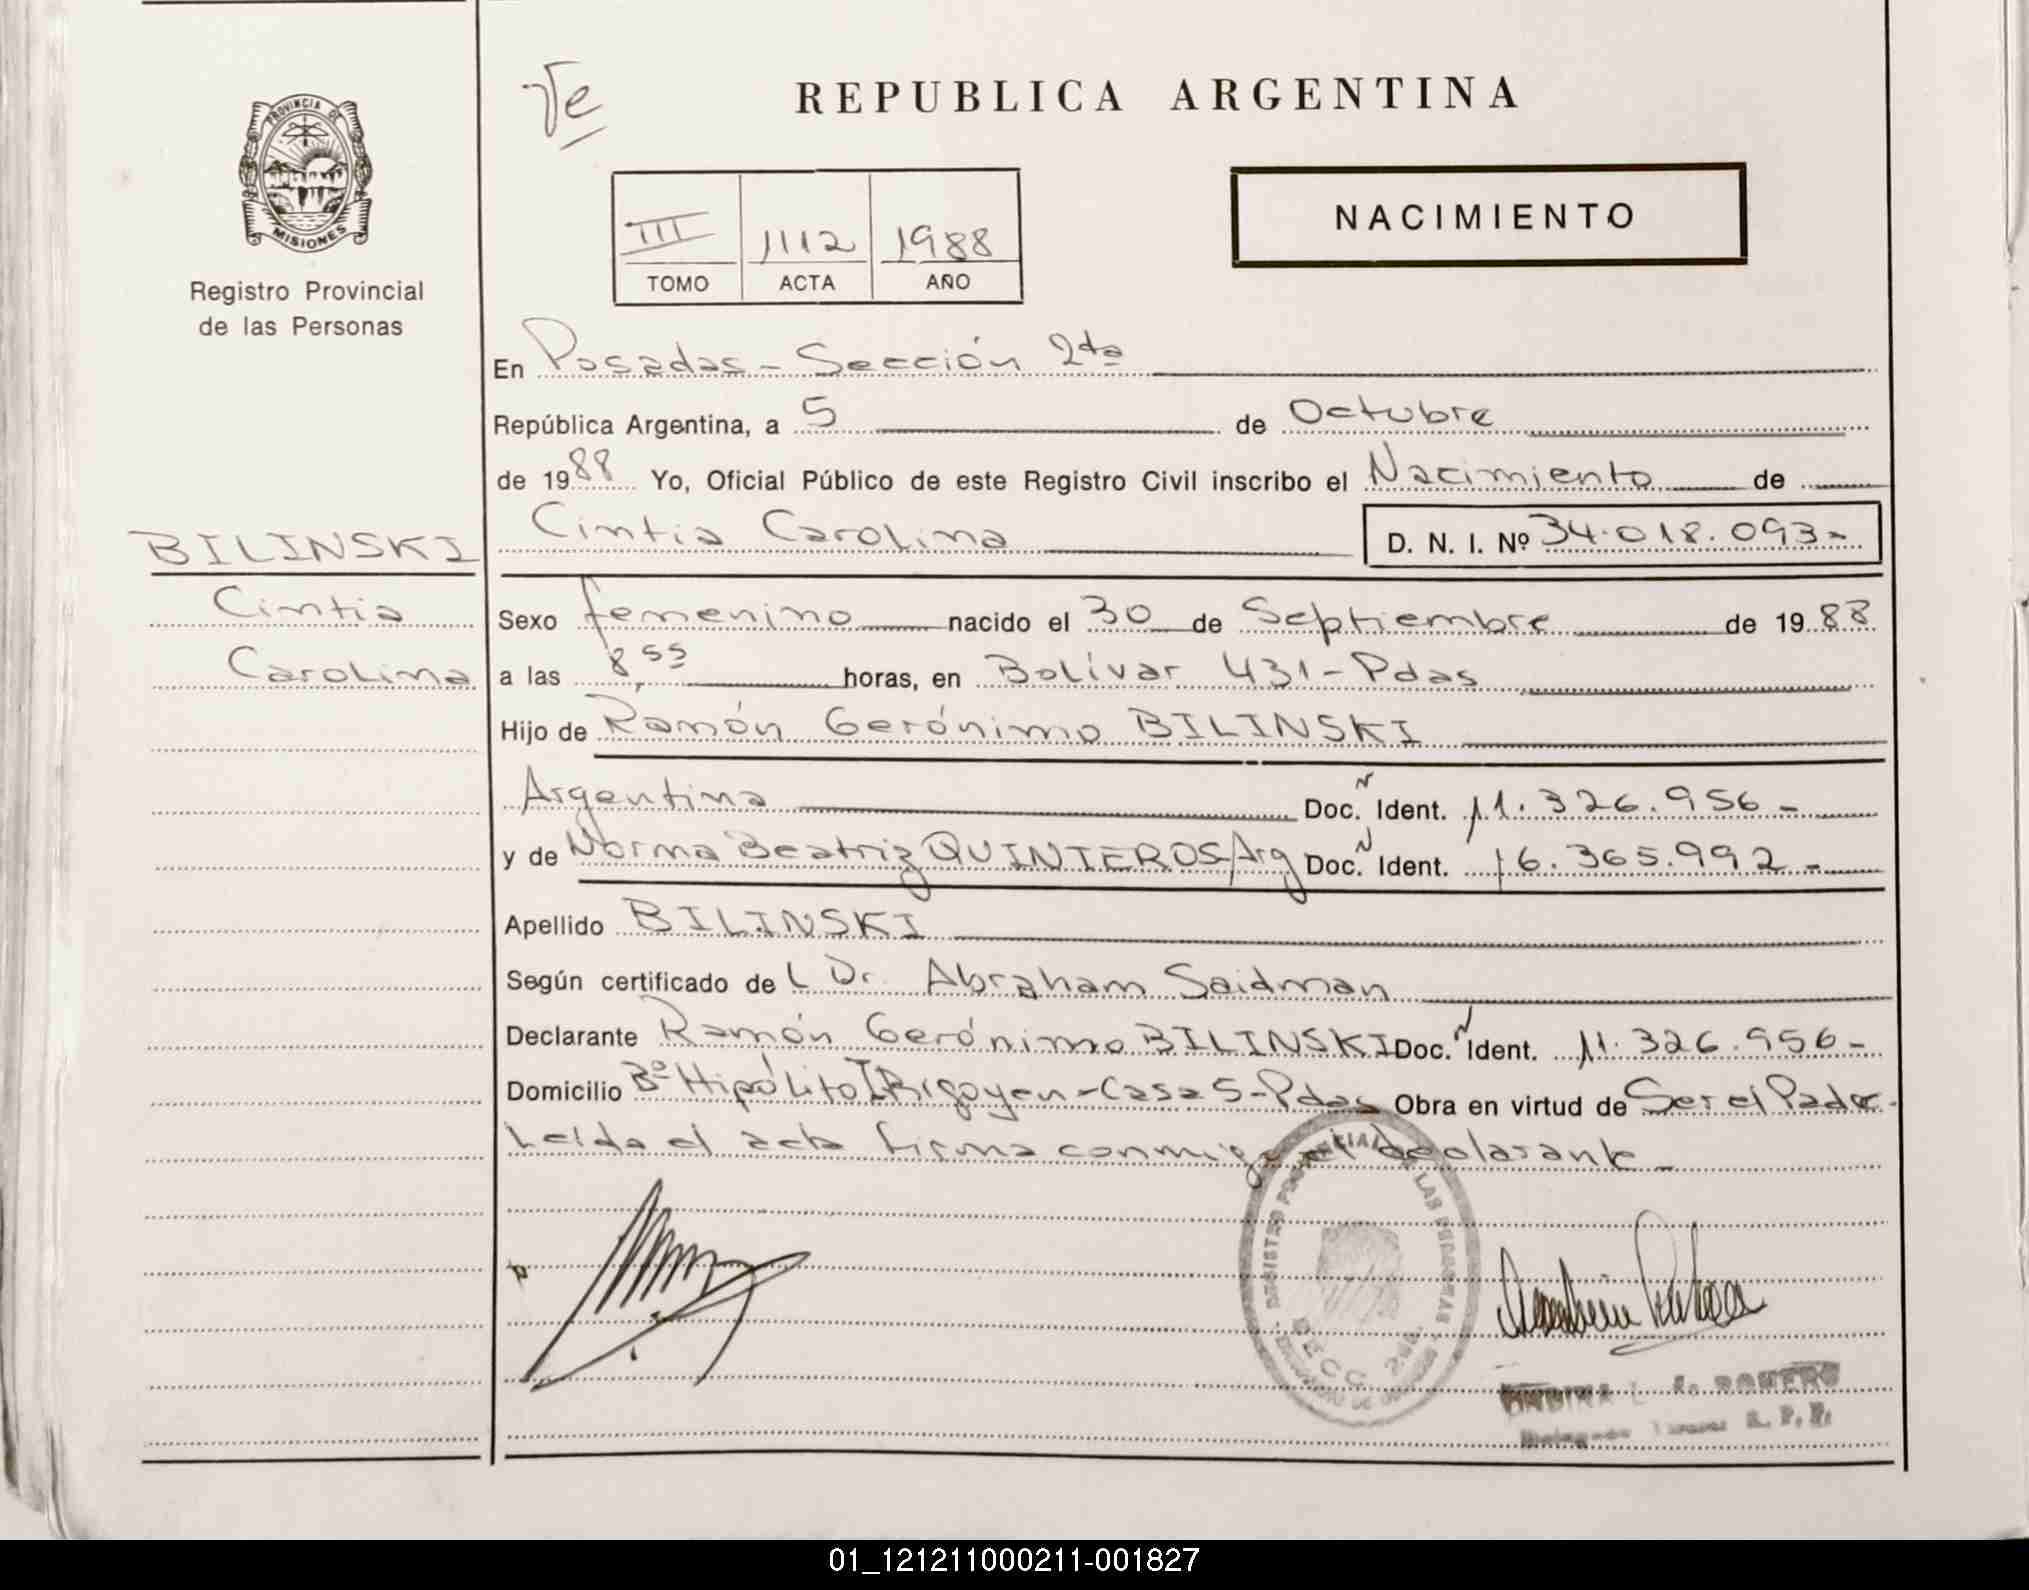 Te
REPUBLICA ARGENTINA
PROVINCIA DE
MISIONES
Registro Provincial
de las Personas
III 1112 1988
TOMO ACTA AÑO
NACIMIENTO
En Posadas - Sección 2da
República Argentina, a 5 de Octubre
de 1988 Yo, Oficial Público de este Registro Civil inscribo el Nacimiento de
BILINSKI
Cintia Carolina D. N. I. Nº 34.018.093-
Cintia
Carolina
Sexo femenino nacido el 30 de Septiembre de 1988
a las 8,55 horas, en Bolívar 431 - Pdas
Hijo de Ramón Gerónimo BILINSKI
Argentina Doc. N Ident. 11.326.956-
y de Norma Beatriz QUINTEROS Arg Doc. N Ident. 16.365.992-
Apellido BILINSKI
Según certificado de L Dr. Abraham Saidman
Declarante Ramón Gerónimo BILINSKI Doc. N Ident. 11.326.956-
Domicilio Bº Hipólito IRigoyen - Casa 5 - Pdas Obra en virtud de Ser el Padre-
Leída el acta firma conmigo el declarante-
REGISTRO PROVINCIAL DE LAS PERSONAS
SECC. 2da.
L. F. ROMERO
R. P. P.
01_121211000211-001827